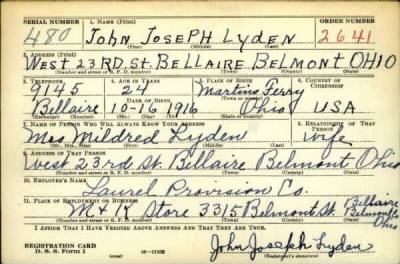 SERIAL NUMBER 1. NAME (Print) ORDER NUMBER
480 John Joseph Lyden 2641
(First) (Middle) (Last)
2. ADDRESS (Print)
West 23RD. St. Bellaire Belmont Ohio
(Number and street or R. F. D. number) (Town) (County) (State)
3. TELEPHONE 4. AGE IN YEARS 5. PLACE OF BIRTH 6. COUNTRY OF CITIZENSHIP
9145 24 Martins Ferry
DATE OF BIRTH (Town or county)
Bellaire 10-16-1916 Ohio USA
(Exchange) (Mo.) (Day) (Yr.) (State or country)
7. NAME OF PERSON WHO WILL ALWAYS KNOW YOUR ADDRESS 8. RELATIONSHIP OF THAT PERSON
Mrs Mildred Lyden wife
(Mr., Mrs., Miss) (First) (Middle) (Last)
9. ADDRESS OF THAT PERSON
West 23rd St. Bellaire Belmont Ohio
(Number and street or R. F. D. number) (Town) (County) (State)
10. EMPLOYER'S NAME
Laurel Provision Co.
11. PLACE OF EMPLOYMENT OR BUSINESS
M & K Store 3315 Belmont St. Bellaire Belmont Co. Ohio
(Number and street or R. F. D. number) (Town) (County) (State)
I AFFIRM THAT I HAVE VERIFIED ABOVE ANSWERS AND THAT THEY ARE TRUE.
REGISTRATION CARD
D. S. S. Form 1
John Joseph Lyden
(Registrant's signature)